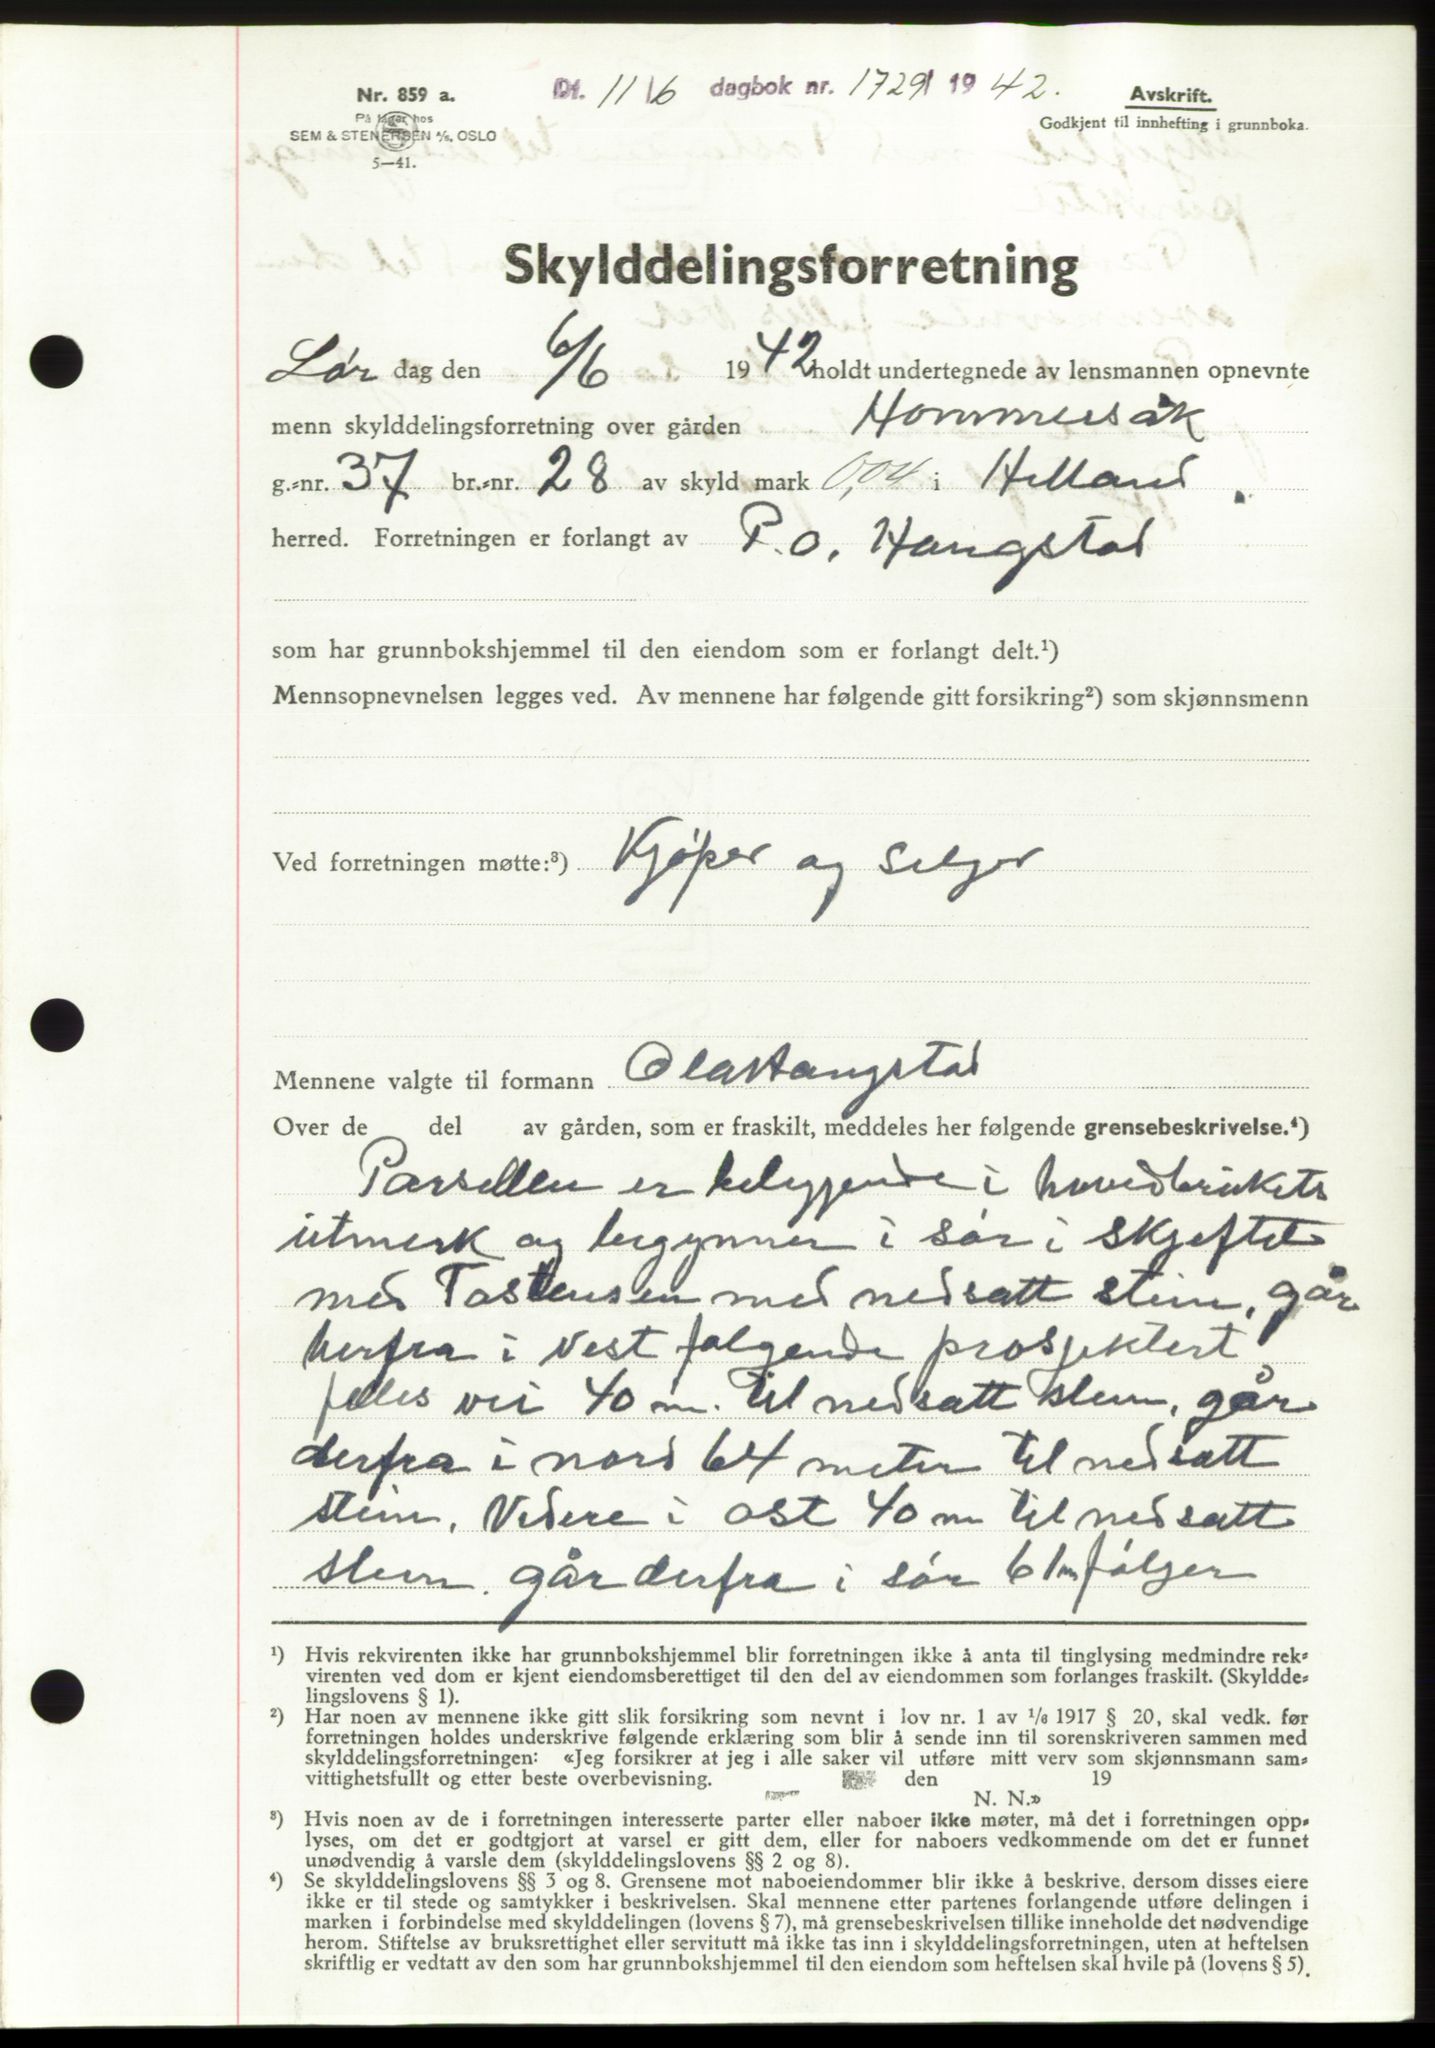 Nr. 859 a.
På lager hos
SEM & STENERSEN A/S, OSLO
5—41.
Dt. 11/6 dagbok nr. 1729/ 1942.
Avskrift.
Godkjent til innhefting i grunnboka.
Skylddelingsforretning
Lør dag den 6/6 1942 holdt undertegnede av lensmannen opnevnte
menn skylddelingsforretning over gården Hommersåk
g.=nr. 37 br.=nr. 28 av skyld mark 0,04 i Hetland.
herred. Forretningen er forlangt av P.O. Haugstad
som har grunnbokshjemmel til den eiendom som er forlangt delt.¹)
Mennsopnevnelsen legges ved. Av mennene har følgende gitt forsikring²) som skjønnsmenn
Ved forretningen møtte:³) Kjøper og Selger
Mennene valgte til formann Ola Haugstad
Over de del av gården, som er fraskilt, meddeles her følgende grensebeskrivelse.⁴)
Parsellen er beliggende i hovedbrukets
utmerk og begynner i sør i skjeftet
med Tostensen med nedsatt stein, går
herfra i vest følgende prosjektert
felles vei 40 m. til nedsatt stein, går
derfra i nord 64 meter til nedsatt
stein. Videre i øst 40 m til nedsatt
stein. går derfra i sør 61m følger
¹) Hvis rekvirenten ikke har grunnbokshjemmel blir forretningen ikke å anta til tinglysing medmindre rek=
virenten ved dom er kjent eiendomsberettiget til den del av eiendommen som forlanges fraskilt. (Skyldde=
lingslovens § 1).
²) Har noen av mennene ikke gitt slik forsikring som nevnt i lov nr. 1 av 1/6 1917 § 20, skal vedk. før
forretningen holdes underskrive følgende erklæring som blir å sende inn til sorenskriveren sammen med
skylddelingsforretningen: «Jeg forsikrer at jeg i alle saker vil utføre mitt verv som skjønnsmann sam=
vittighetsfullt og etter beste overbevisning. den 19
N. N.»
³) Hvis noen av de i forretningen interesserte parter eller naboer ikke møter, må det i forretningen opp=
lyses, om det er godtgjort at varsel er gitt dem, eller for naboers vedkommende om det er funnet
unødvendig å varsle dem (skylddelingslovens §§ 2 og 8).
⁴) Se skylddelingslovens §§ 3 og 8. Grensene mot naboeiendommer blir ikke å beskrive, dersom disses eiere
ikke er til stede og samtykker i beskrivelsen. Skal mennene etter partenes forlangende utføre delingen i
marken i forbindelse med skylddelingen (lovens § 7), må grensebeskrivelsen tillike inneholde det nødvendige
herom. Stiftelse av bruksrettighet eller servitutt må ikke tas inn i skylddelingsforretningen, uten at heftelsen
skriftlig er vedtatt av den som har grunnbokshjemmel til den eiendom som heftelsen skal hvile på (lovens § 5).